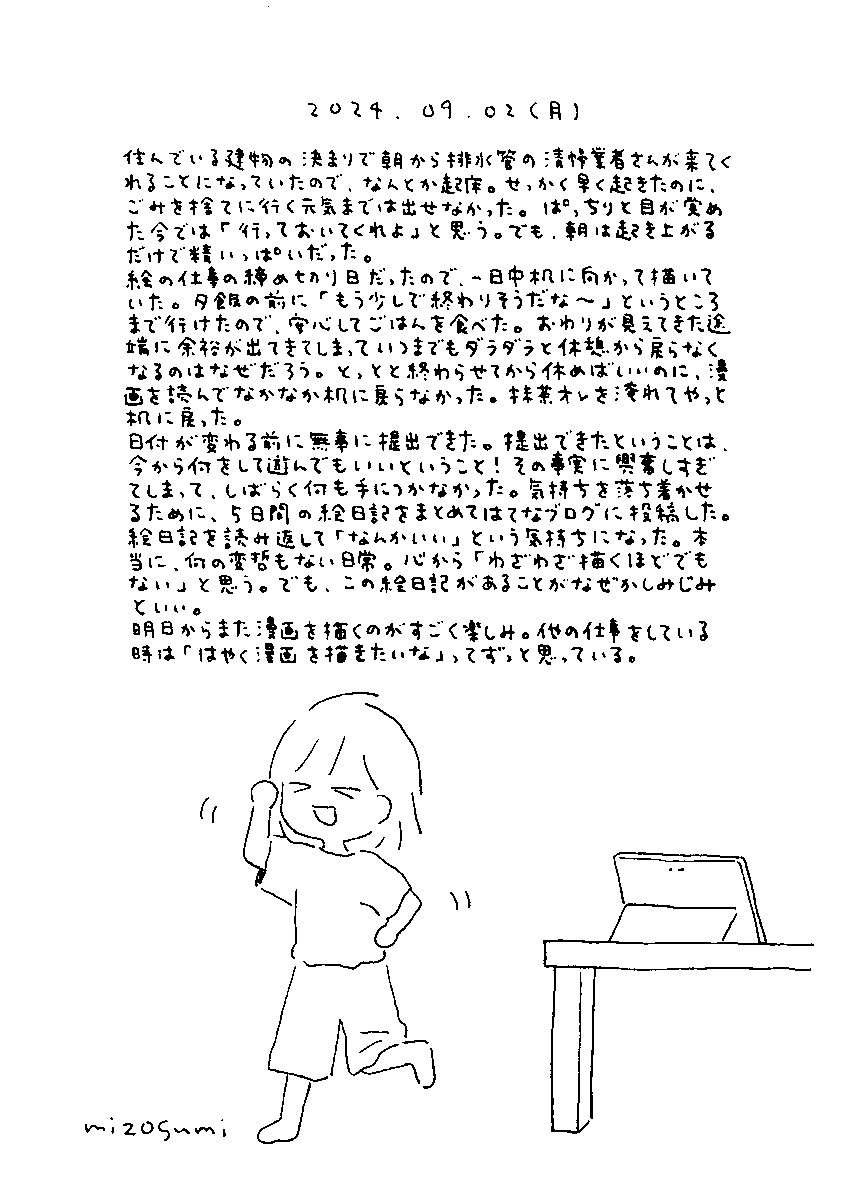 2024.09.02(月)
住んでいる建物の決まりで朝から排水管の清掃業者さんが来てく
れることになっていたので、なんとか起床。せっかく早く起きたのに、
ごみを捨てに行く元気までは出せなかった。ぱっちりと目が覚め
た今では「行っておいてくれよ」と思う。でも、朝は起き上がる
だけで精いっぱいだった。
絵の仕事の締め切り日だったので、一日中机に向かって描いて
いた。夕飯の前に「もう少しで終わりそうだな〜」というところ
まで行けたので、安心してごはんを食べた。おわりが見えてきた途
端に余裕が出てきてしまっていつまでもダラダラと休憩から戻らなく
なるのはなぜだろう。とっとと終わらせてから休めばいいのに、漫
画を読んでなかなか机に戻らなかった。抹茶オレを淹れてやっと
机に戻った。
日付が変わる前に無事に提出できた。提出できたということは、
今から何をして遊んでもいいということ！その事実に興奮しすぎ
てしまって、しばらく何も手につかなかった。気持ちを落ち着かせ
るために、5日間の絵日記をまとめてはてなブログに投稿した。
絵日記を読み返して「なんかいい」という気持ちになった。本
当に、何の変哲もない日常。心から「わざわざ描くほどでも
ない」と思う。でも、この絵日記があることがなぜかしみじみ
といい。
明日からまた漫画を描くのがすごく楽しみ。他の仕事をしている
時は「はやく漫画を描きたいな」ってずっと思っている。
mizogumi